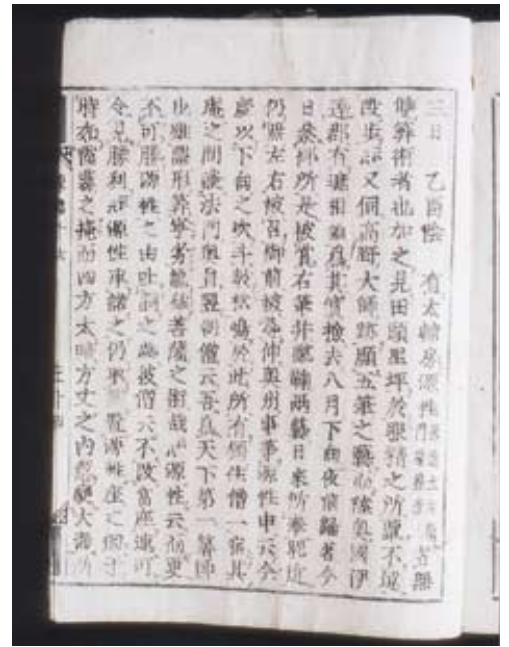 三日 乙酉陰 有大輔房源性 無雙
算術者也加之見田頭里坪於眼精之所覃不違
段歩云云又伺高野大師跡顯五筆之藝而陸奥國伊
達郡有境相論爲其實檢去八月下向夜前歸著今
日參御所是被賞右筆并蹴鞠兩藝日來所奉昵近
仍 左右被召御前被尋仰奥州事等源性申云今
度以下向之次斗藪松嶋於此所有獨住僧一宿其
庵之間談法門奥旨翌朝僧云吾爲天下第一算師
也雖 形算寧者龍猛菩薩之術哉 源性云而更
不可勝源性之由吐詞之處彼僧云不改當座速可
令見勝利云云源性承諾之仍取算置源性座之圍于
時如霞霧之掩而四方太暗方丈之内忽變大海所